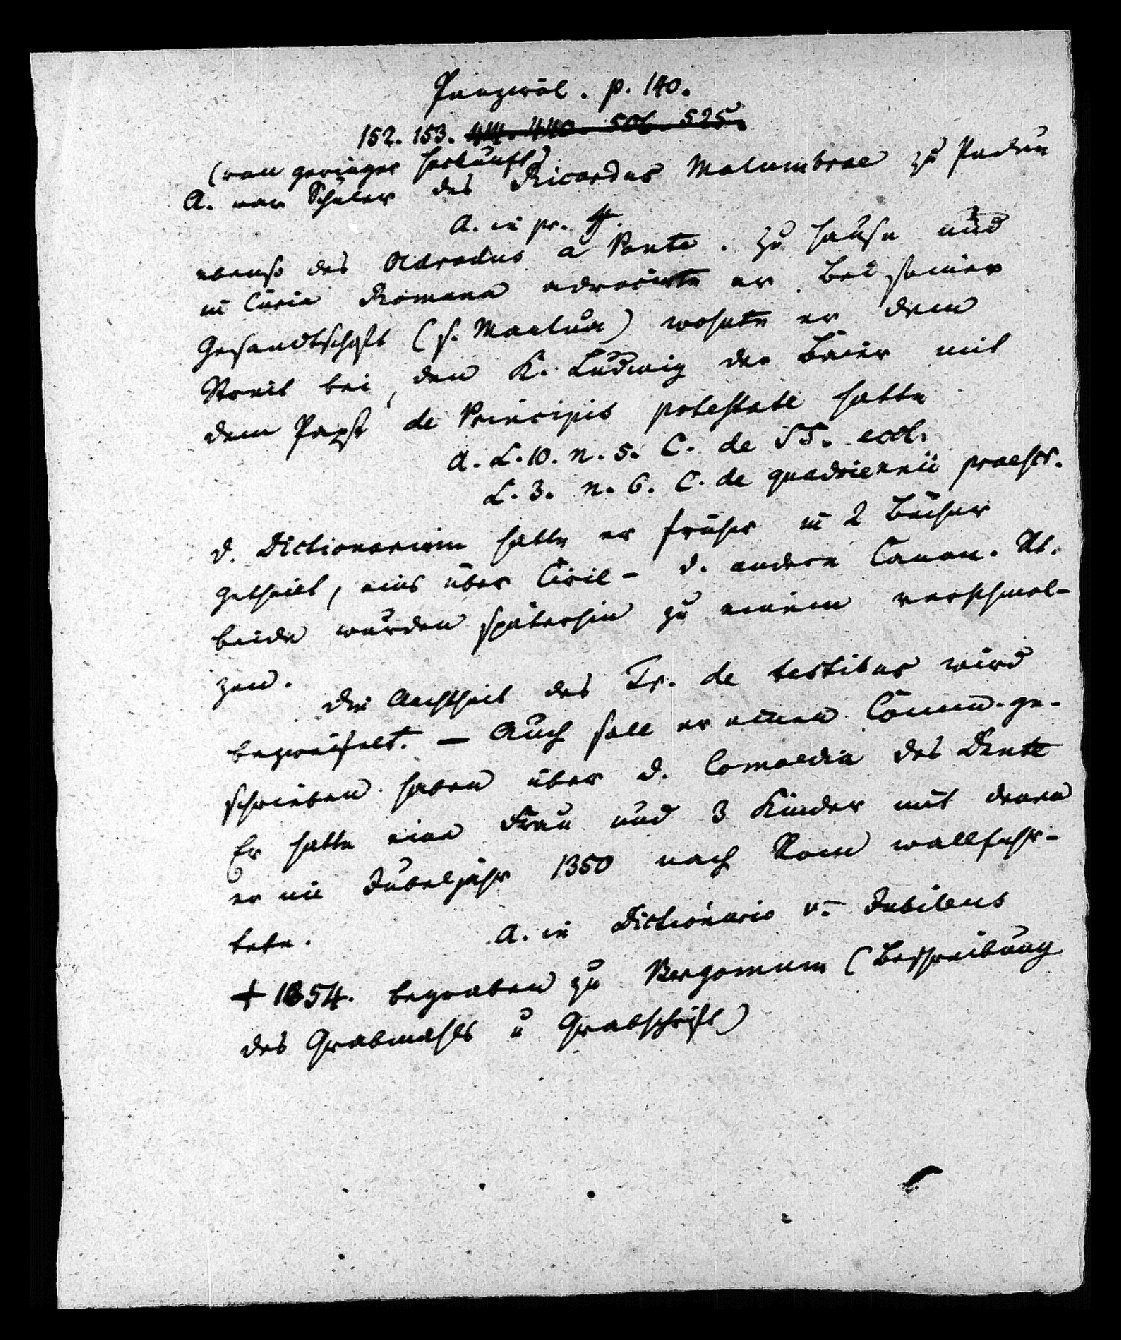 Panzirol. p. 140.
152. 153. 414. 440. 506. 525.
(von geringer Herkunft)
A. war Schüler des Ricardus Malumbrae zu Padua
A. in pr. ff.
ebenso des Oldradus a Ponte. Zu Hause und
in Curia Romana advocirte er. Bei seiner
Gesandtschaft (s. Mantua) wohnte er dem
Streit bei, den K. Ludwig der Baier mit
dem Papst de Principis potestate hatte
A. L. 10. n. 5. C. de SS. eccl.
L. 3. n. 6. C. de quadriennii praescr.
d. Dictionarium hatte er früher in 2 Bücher
getheilt, eins über Civil- d. andere Canon. Rt.
beide wurden späterhin zu einem verschmol-
zen.
Die Aechtheit des Tr. de testibus wird
bezweifelt. — Auch soll er einen Comm. ge-
schrieben haben über d. Comoedia des Dante
Er hatte eine Frau und 3 Kinder mit denen
er im Jubeljahr 1350 nach Rom wallfahr-
tete.
A. in Dictionario v. Jubilaeus
† 1354. begraben zu Bergomum (Beschreibung
des Grabmahls u Grabschrift)